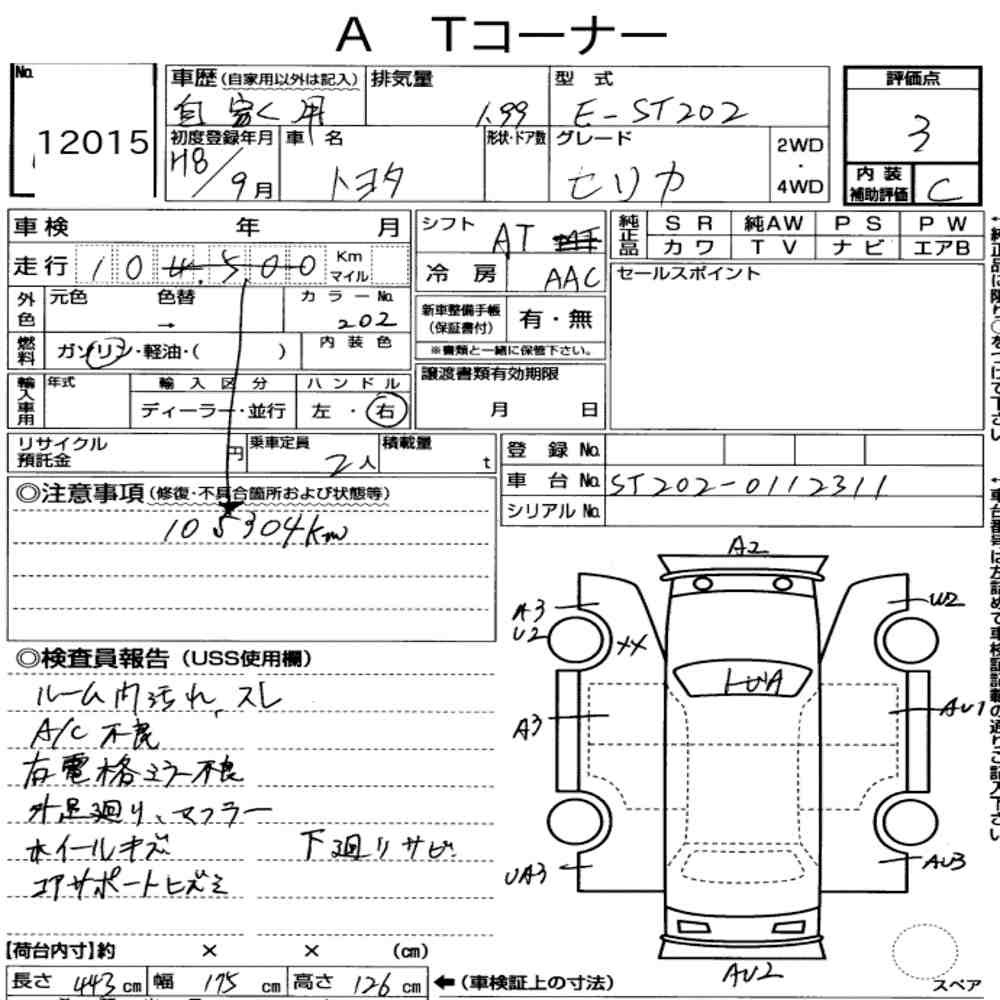 A Tコーナー
No. 12015
車歴(自家用以外は記入) 自家用
排気量 1.99
型式 E-ST202
評価点 3
内装補助評価 C
初度登録年月 H8/9月
車名 トヨタ
形状・ドア数
グレード セリカ
2WD・4WD
車検 年 月
走行 104,500 Km マイル
シフト AT
冷房 AAC
純正品 SR 純AW PS PW
カワ TV ナビ エアB
セールスポイント
外色 元色 色替 → カラーNo. 202
燃料 ガソリン・軽油・( ) 内装色
新車整備手帳(保証書付) 有・無
※書類と一緒に保管下さい。
輸入車用 年式 輸入区分 ディーラー・並行 ハンドル 左・右
譲渡書類有効期限 月 日
リサイクル預託金 円
乗車定員 2人
積載量 t
登録No.
車台No. ST202-0112311
シリアルNo.
◎注意事項(修復・不具合箇所および状態等)
105304Km
◎検査員報告(USS使用欄)
ルーム内汚れ、スレ
A/C不良
右電格ミラー不良
外足廻り、マフラー
ホイールキズ 下廻りサビ
コアサポートヒズミ
A2
A3
U2
XX
U2
A3
AU1
UA3
AU3
AU2
スペア
【荷台内寸】約 × × (cm)
長さ 443cm 幅 175cm 高さ 126cm
←(車検証上の寸法)